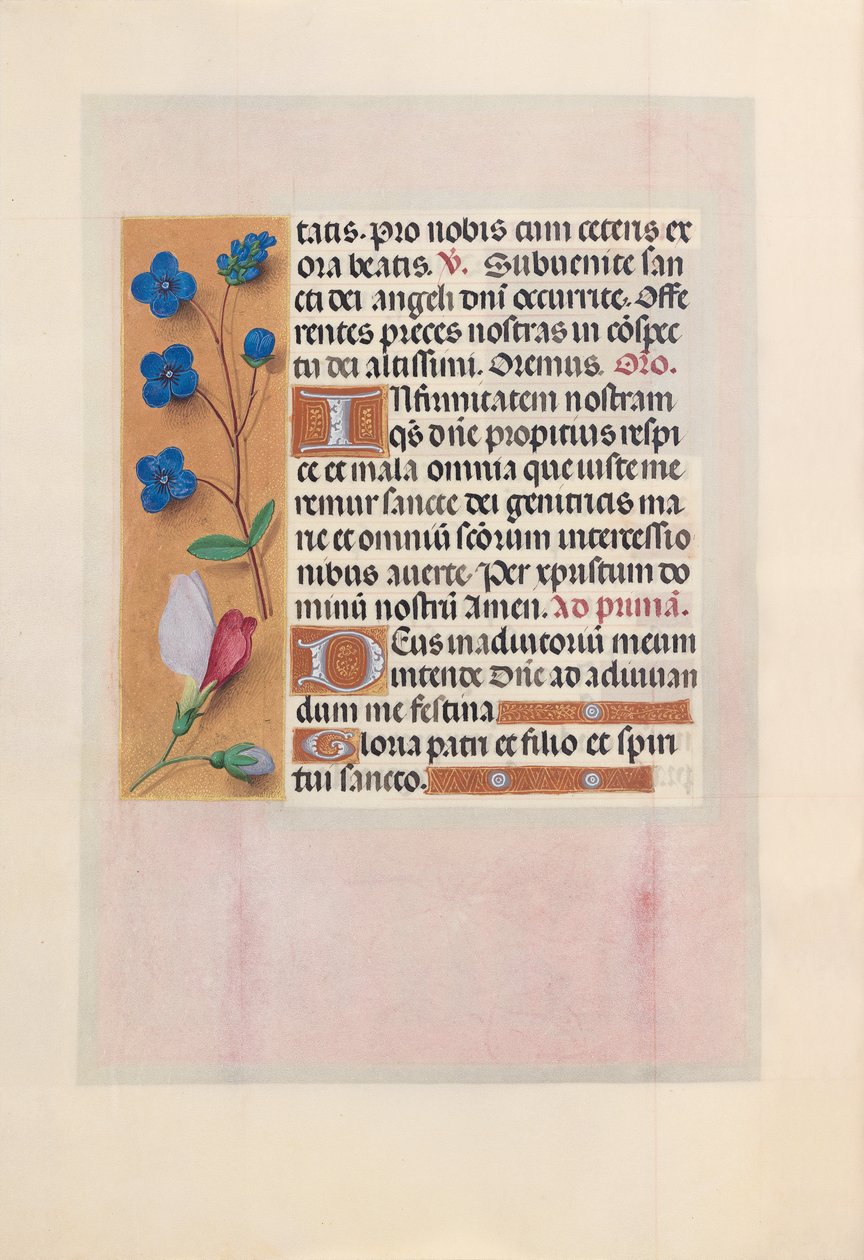 tatis. pro nobis cum ceteris ex
ora beatis. V̄. Subuenite san
cti dei angeli dn̄i occurrite. Offe
rentes preces nostras in cōspec
tu dei altissimi. Oremus. Orō.
INfirmitatem nostram
qs̄ dn̄e propitius respi
ce et mala omnia que iuste me
remur sancte dei genitricis ma
rie et omniū scōrum intercessio
nibus auerte. Per xpristum do
minū nostrū Amen. Ad primā.
DEus in adiutoriū meum
intende Dn̄e ad adiuuan
dum me festina
Gloria patri et filio et spiri
tui sancto.